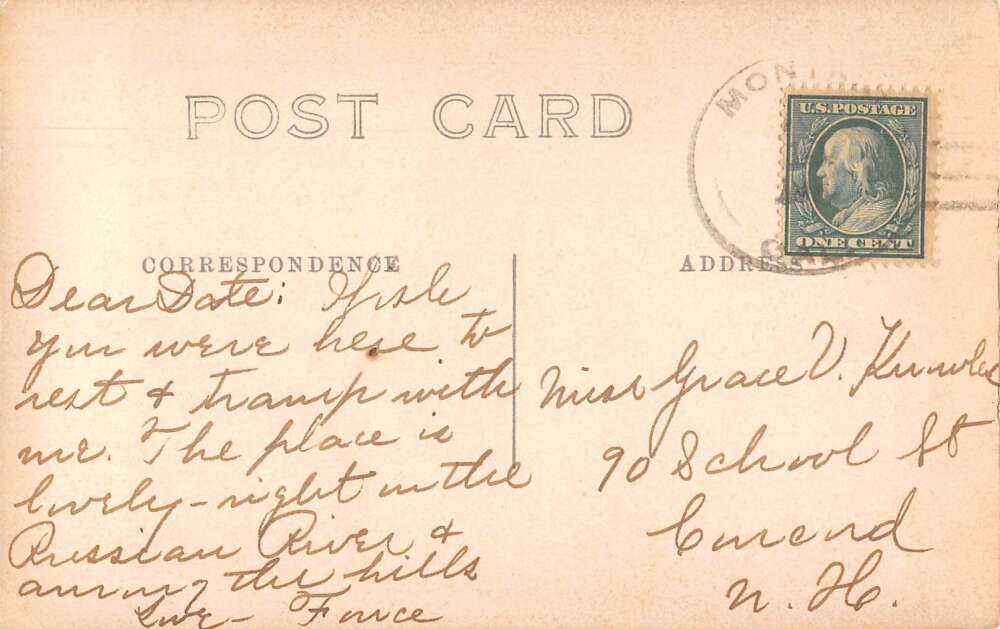 POST CARD
U.S. POSTAGE
ONE CENT
CORRESPONDENCE
ADDRESS
Dear Date: Wish
you were here to
rest & tramp with
me. The place is
lovely - right on the
Russian River &
among the hills
Love -
Miss Grace V.
90 School St
Concord
N. H.